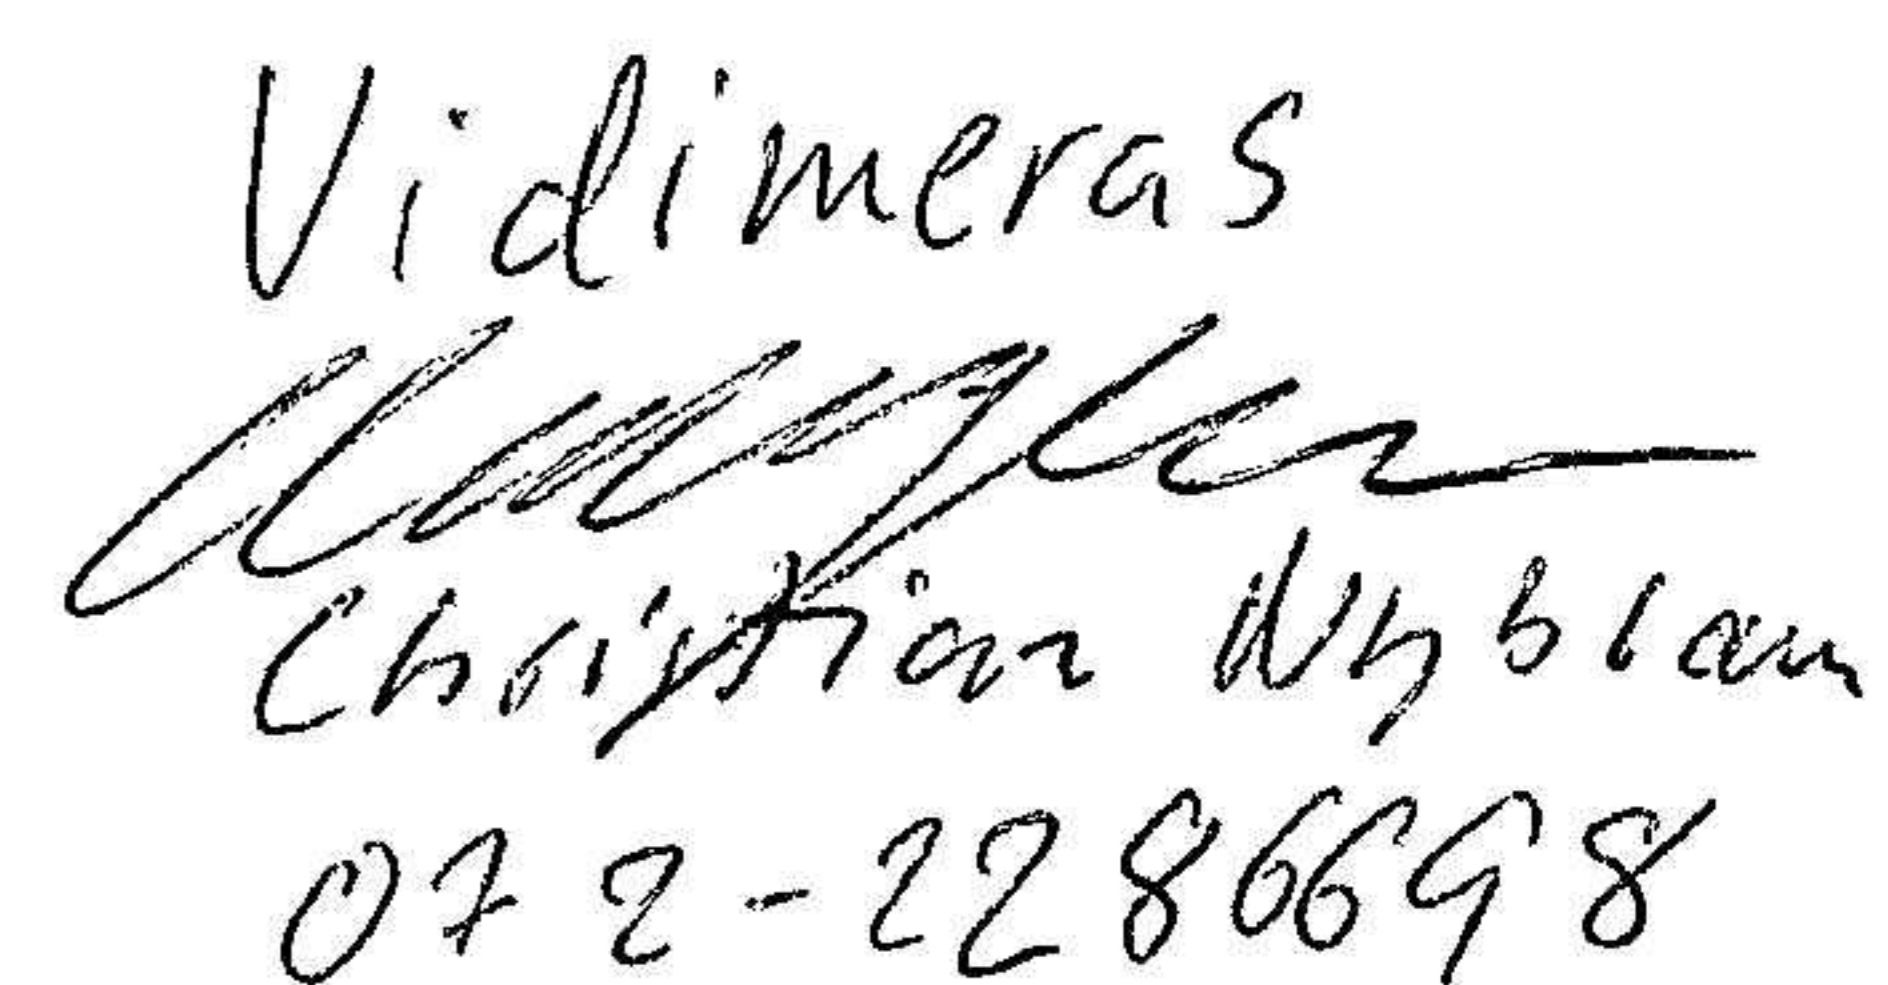 Vidimeras
Christian Nyblam
072-2286698